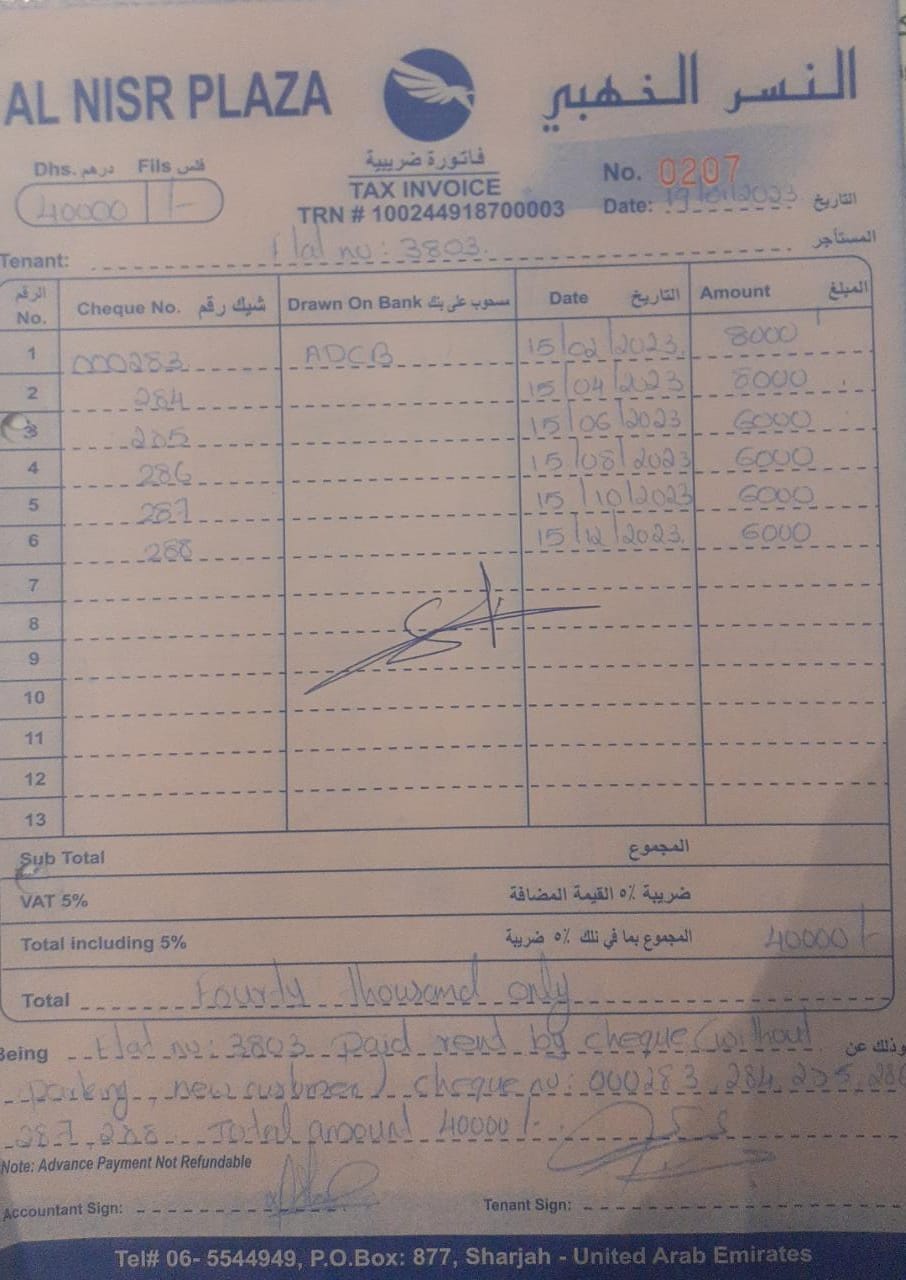 AL NISR PLAZA
النسر الذهبي
Dhs. درهم Fils فلس
40000 /-
فاتورة ضريبية
TAX INVOICE
TRN # 100244918700003
No. 0207
Date: 19/01/2023 التاريخ
Tenant: Flat no: 3803. المستأجر
الرقم No. Cheque No. شيك رقم Drawn On Bank مسحوب على بنك Date التاريخ Amount المبلغ
1 000283 ADCB 15/02/2023 8000
2 284 15/04/2023 8000
3 285 15/06/2023 6000
4 286 15/08/2023 6000
5 287 15/10/2023 6000
6 288 15/12/2023. 6000
7
8
9
10
11
12
13
Sub Total المجموع
VAT 5% ضريبة ٥٪ القيمة المضافة
Total including 5% المجموع بما في ذلك ٥٪ ضريبة 40000/-
Total Fourty thousand only
Being Flat no: 3803 Paid rent by cheque (without وذلك عن
parking, new customer) cheque no: 000283, 284, 285, 286
287, 288 Total amount 40000/-
Note: Advance Payment Not Refundable
Accountant Sign: Tenant Sign:
Tel# 06- 5544949, P.O.Box: 877, Sharjah - United Arab Emirates